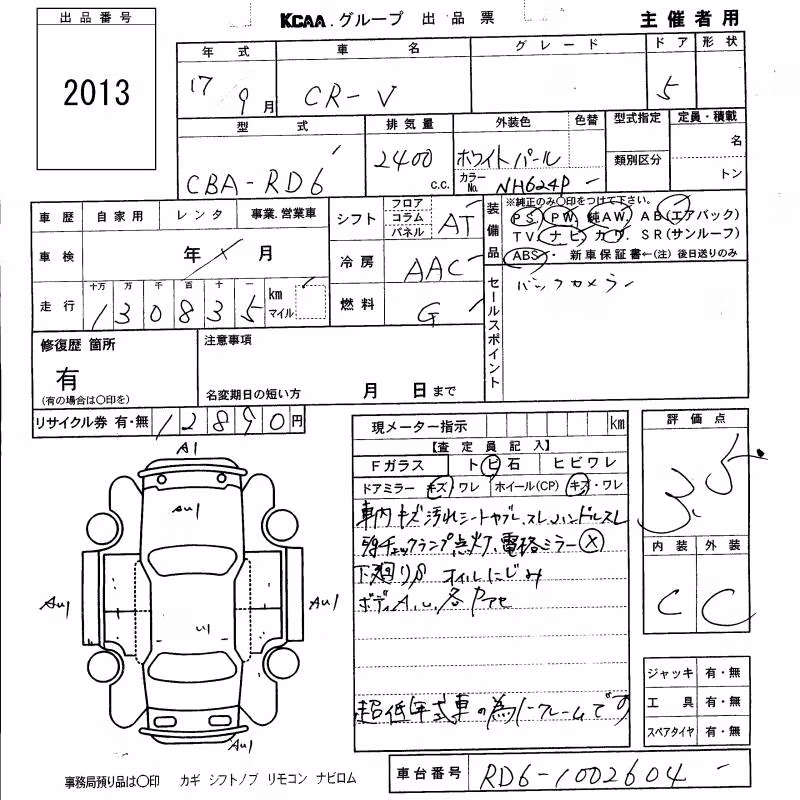 出品番号
2013
KCAA.グループ 出品票
主催者用
年式 車名 グレード ドア 形状
17 9月 CR-V 5
型式 排気量 外装色 色替 型式指定 定員・積載
CBA-RD6 2400 c.c. ホワイトパール 類別区分 名
カラーNo. NH624P トン
車歴 自家用 レンタ 事業.営業車
車検 年 月
走行 十万 万 千 百 十 一 km マイル
130835
シフト フロア コラム パネル AT
冷房 AAC
燃料 G
装備品
※純正のみ〇印をつけて下さい。
PS. PW. 純AW. AB(エアバック)
TV. ナビ. カワ. SR(サンルーフ)
ABS・ 新車保証書←(注)後日送りのみ
セールスポイント
バックカメラ
修復歴 箇所
有
(有の場合は〇印を)
注意事項
名変期日の短い方 月 日まで
リサイクル券 有・無 12890円
現メーター指示 km
【査定員記入】
Fガラス トビ石 ヒビワレ
ドアミラー キズ ワレ ホイール(CP) キズ・ワレ
車内キズ汚れシートヤブレ.スレ.ハンドルスレ
チェックランプ点灯、電格ミラー×
下廻りS オイルにじみ
ボディA.U.各
超低年式車の為ノークレームです
評価点
3.5
内装 外装
C C
ジャッキ 有・無
工具 有・無
スペアタイヤ 有・無
A1
AU1
AU1
AU1
AU1
事務局預り品は〇印 カギ シフトノブ リモコン ナビロム
車台番号 RD6-1002604